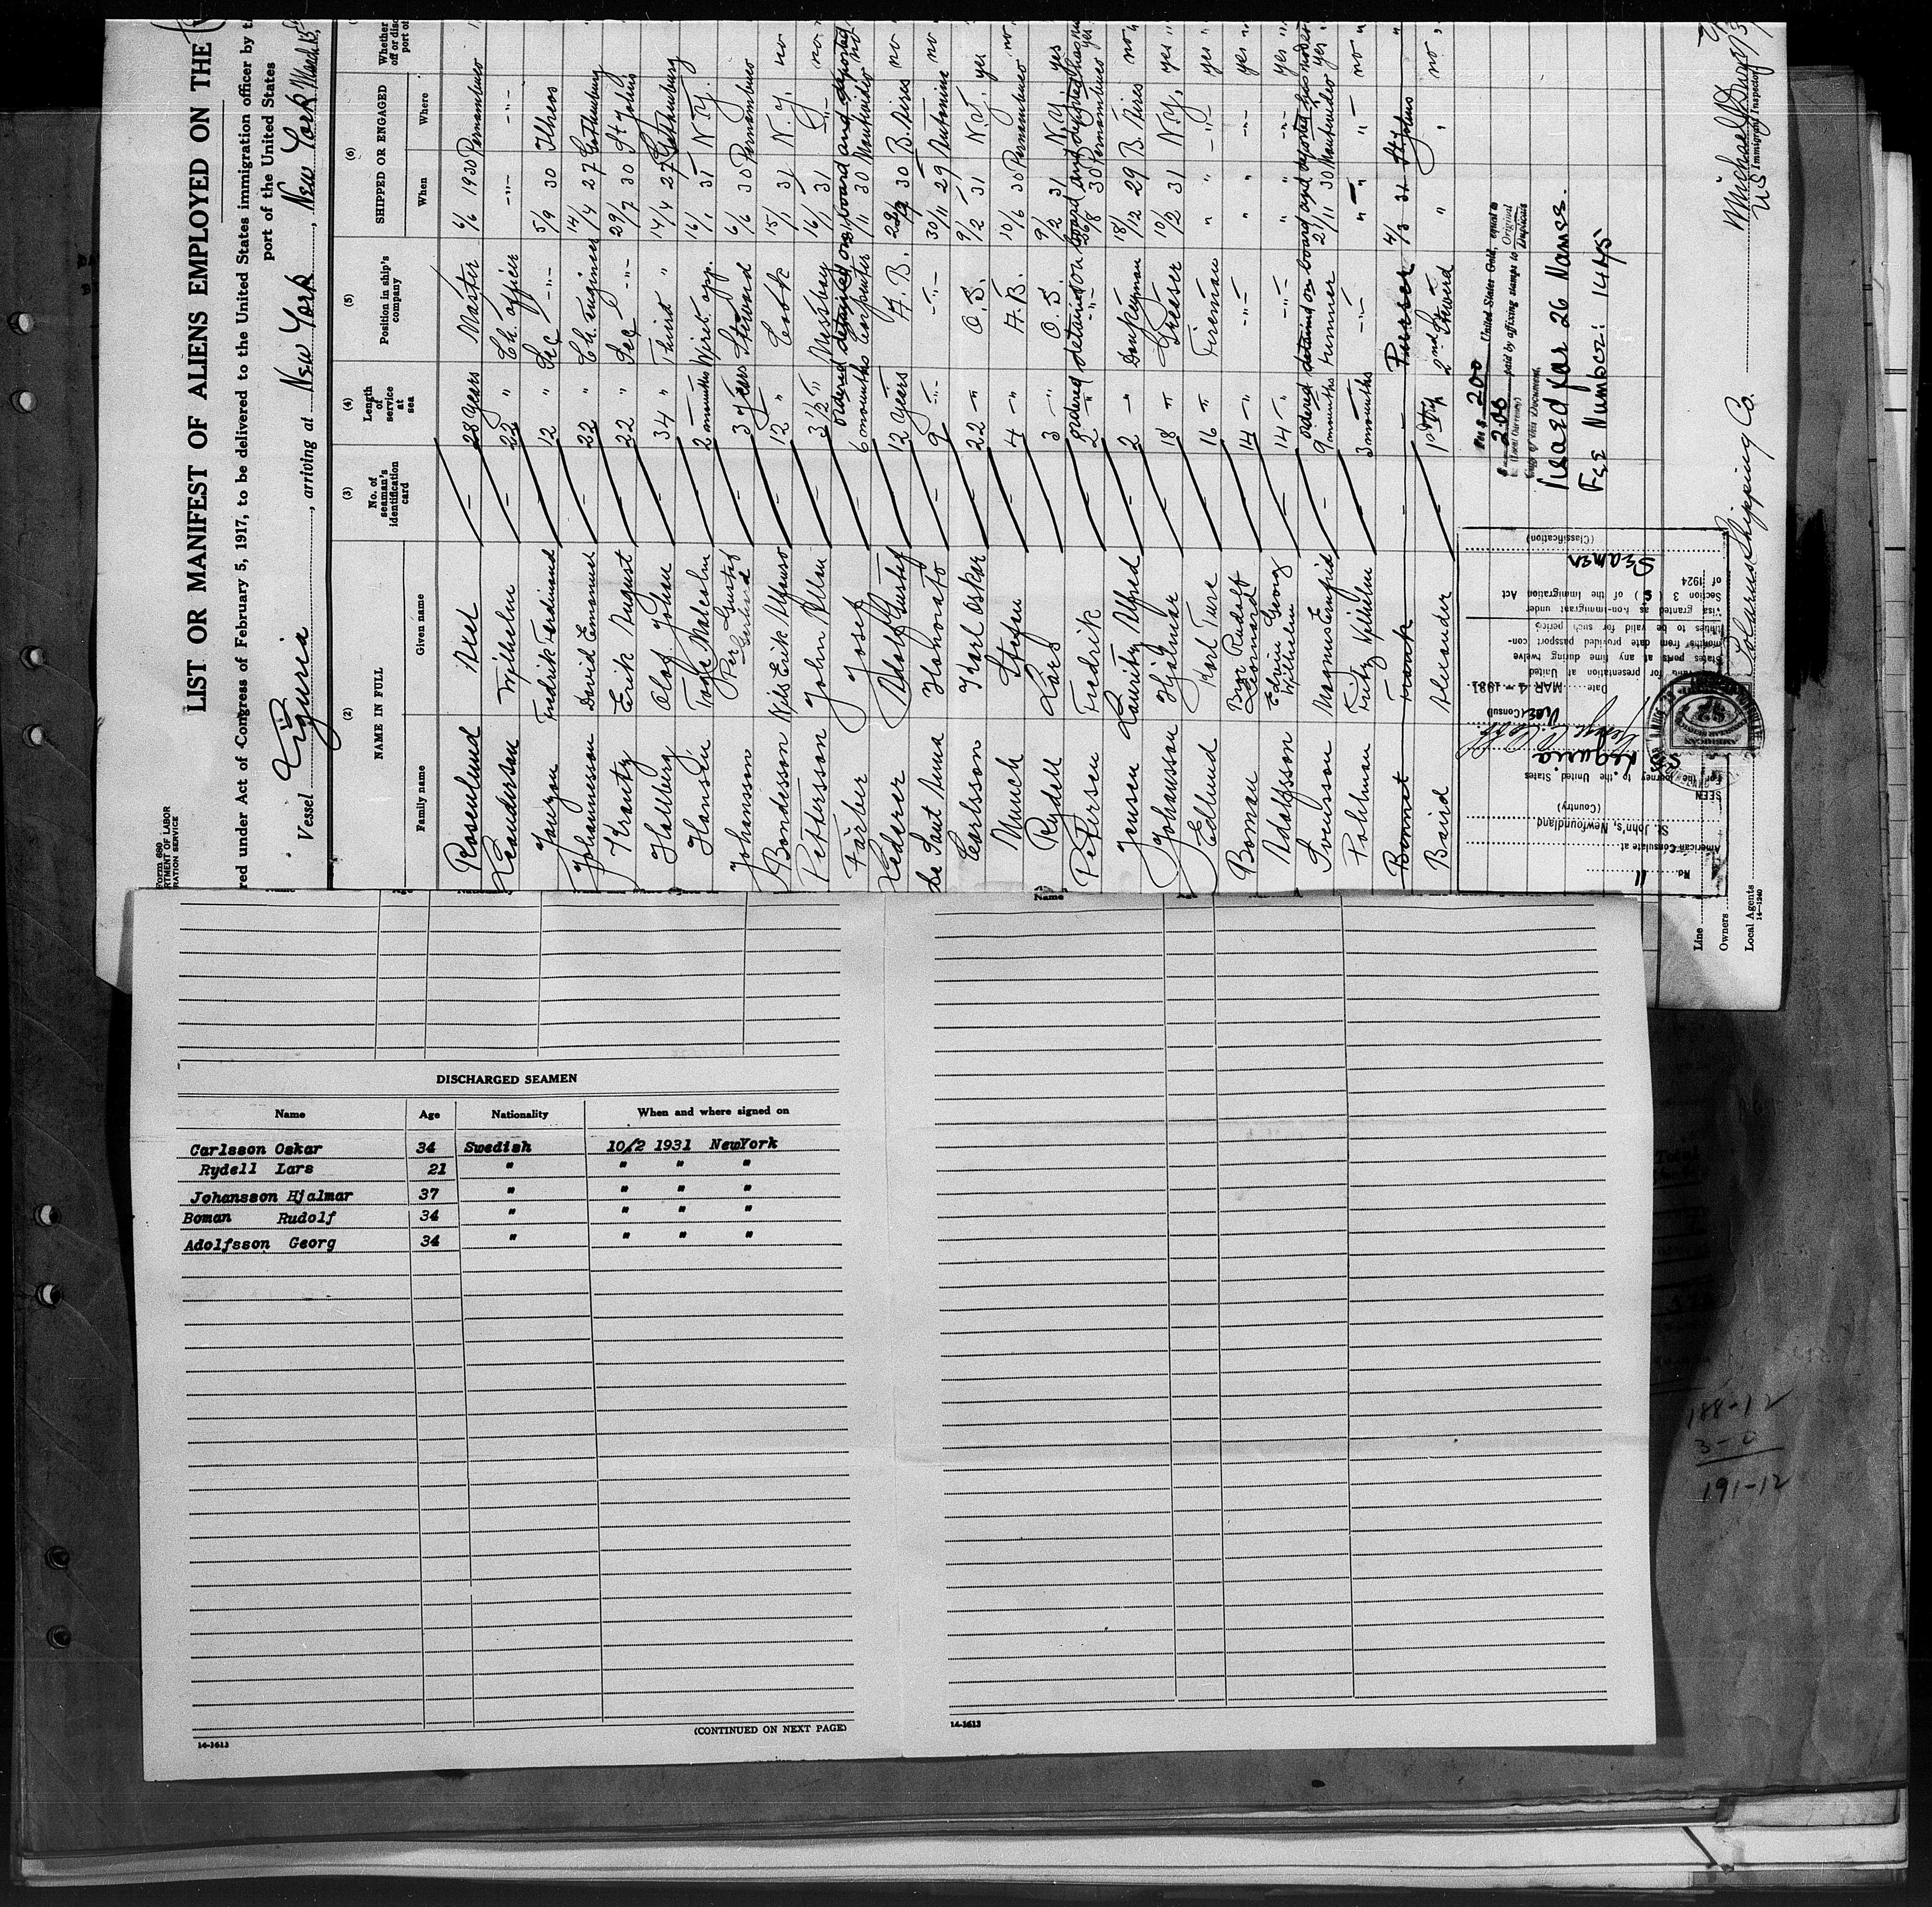 Form 680
LIST OR MANIFEST OF ALIENS EMPLOYED ON THE
red under Act of Congress of February 5, 1917, to be delivered to the United States immigration officer by
port of the United States
Vessel Liguria, arriving at New York, New York March 15
(2) (3) (4) (5) (6)
NAME IN FULL
Family name Given name
No. of seaman's identification card
Length of service at sea
Position in ship's company
SHIPPED OR ENGAGED
When Where
Rosenlund Axel — 28 years Master 6/6 1930 Pernambuco
Leanderson Wilhelm — 22 " Ch. officer -"-  -"-
Fredrik Ferdinand — 12 " Sec -"- 5/9 30 Ilheos
Johannesson David Emanuel — 22 " Ch. Engineer 14/4 27 Gothenburg
Krantz Erik August — 22 " Sec -"- 29/7 30 St Johns
Hallberg Olof Johan — 34 " Third " 14/4 27 Gothenburg
Hansen Tage Malcolm — 2 months Wirel. opp. 16/1 31 N.Y.
Johansson Per Gustaf Gerhard — 3 years Steward 6/6 30 Pernambuco
Bondesson Nils Erik Alfonso — 12 -"- Cook 15/1 31 N.Y. no
Pettersson John Allan — 3½ -"- Messboy 16/1 31 -"- no
ordered detained on board and deported
Färber Josef — 6 months Carpenter 1/11 30 no
Hedarer Adolf Gustaf — 12 years A.B. 30 B. Aires no
de Sant Anna Honorato — 9 -"- -"- 30/11 29 no
Carlsson Karl Oskar — 22 -"- O.S. 9/2 31 N.Y. yes
Munch Stefan — 4 -"- A.B. 10/6 30 Pernambuco no
Rydell Lars — 3 -"- O.S. 9/2 31 N.Y. yes
ordered detained on board and deported
Petersen Fredrik — 2 -"- -"- 26/8 30 Pernambuco yes
Jensen Laurits Alfred — 2 -"- Donkeyman 18/12 29 B. Aires no
Johansson Hjalmar — 18 " Greaser 10/2 31 N.Y. yes
Edlund Karl Ture — 16 " Fireman " " -"- yes
Boman Rudolf Leonard — 14 -"- -"- " " -"- yes
Adolfsson Edvin Georg Wilhelm — 14 -"- -"- " " -"- yes
ordered detained on board and deported
Svensson Magnus Enfrid — 9 months Trimmer 21/11 30 yes
Pohlman Fritz Wilhelm — 3 months -"- " " -"- no
Bonnet Frank — — Purser 4/3 31 St Johns
Baird Alexander — 1st trip 2nd Steward " " no
$ 2.00 United States Gold, equal to
paid by affixing stamps to Original
Duplicate
copy of this Document.
Visaed for 26 Names.
Fee Number: 1445
No. 11
American Consulate at
St. John's, Newfoundland
(Country)
SEEN
For the journey to the United States
SS Liguria
Vice (Consul)
Date MAR - 4 - 1931
for presentation at United
States ports at any time during twelve
months from date provided passport con-
tinues to be valid for such period
Visa granted as non-immigrant under
Section 3 (5) of the Immigration Act
of 1924
Seamen
(Classification)
Line
Owners
Local Agents Shipping Co.
14—1240
US Immigrant Inspector
Name
DISCHARGED SEAMEN
Name Age Nationality When and where signed on
Carlsson Oskar 34 Swedish 10/2 1931 NewYork
Rydell Lars 21 " " " "
Johansson Hjalmar 37 " " " "
Boman Rudolf 34 " " " "
Adolfsson Georg 34 " " " "
(CONTINUED ON NEXT PAGE)
14-1613
14-1613
188-12
3-0
191-12